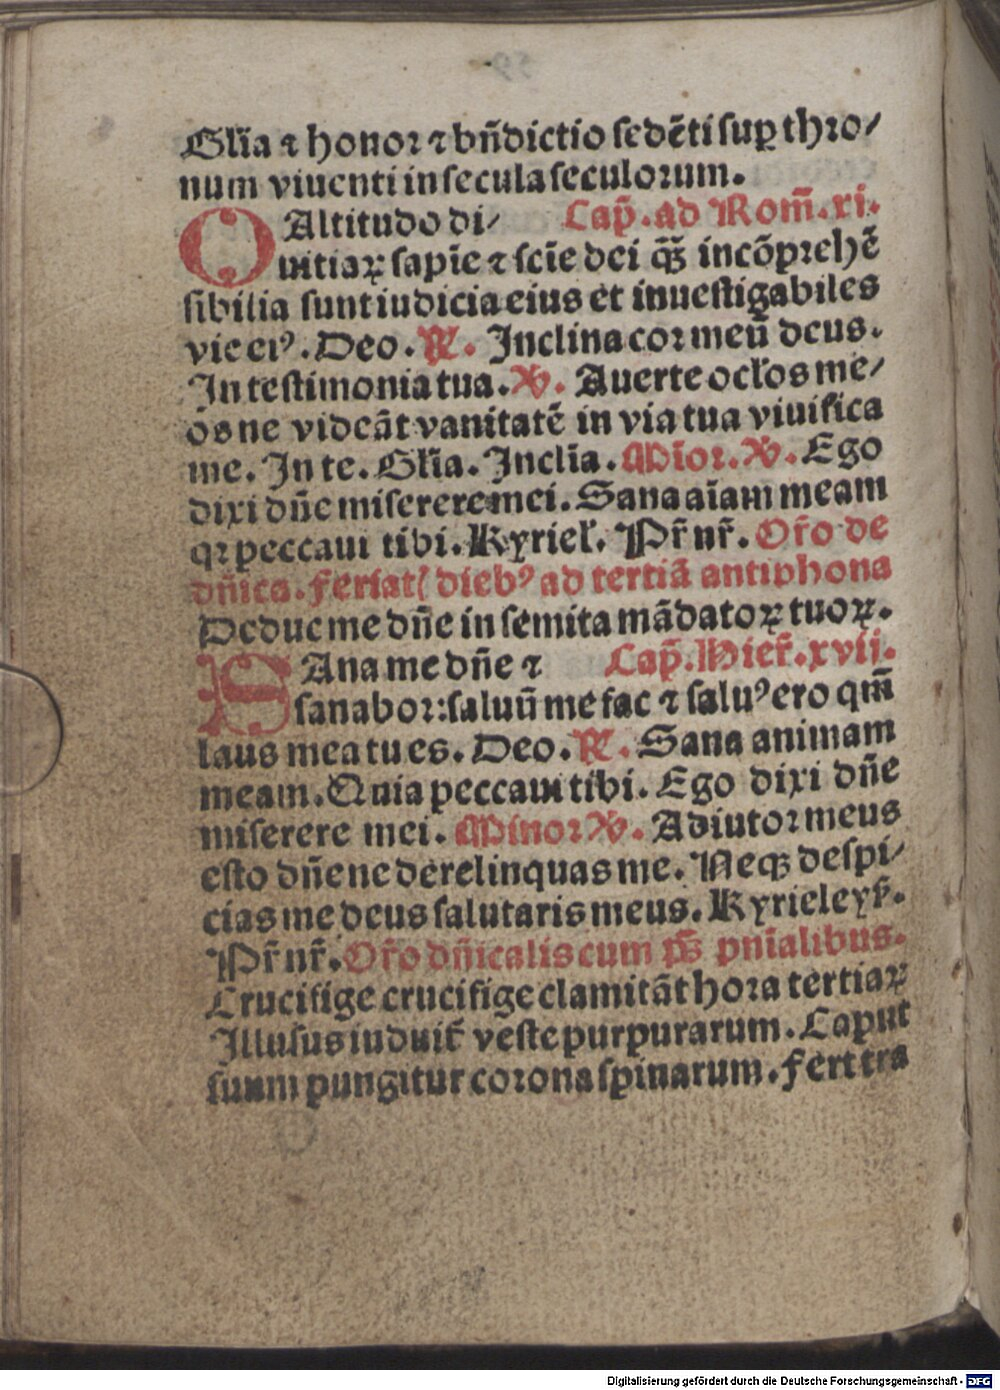 Gl̄ia ⁊ honoꝛ ⁊ bn̄dictio ſedēti ſuꝑ thꝛo/
num viuenti in ſecula ſeculoꝛum.
O Altitudo di/ Cap̄. ad Rom̄. xi.
uitiaꝝ ſapīe ⁊ ſcīe dei q̄ꝫ incōpꝛehē
ſibilia ſunt iudicia eius et inueſtigabiles
vie eiꝰ. Deo. ℟. Inclina coꝛ meū deus.
In teſtimonia tua. ℣. Auerte ocl̓os me/
os ne videāt vanitatē in via tua viuifica
me. In te. Gl̄ia. Inclīa. Mīoꝛ. ℣. Ego
dixi dn̄e miſerere mei. Sana aīam meam
qꝛ peccaui tibi. Kyriel̓. Pr̄ nr̄. Or̄o de
dn̄ica. Feriatꝭ diebꝰ ad tertiā antiphona
Deduc me dn̄e in ſemita mādatoꝝ tuoꝝ.
S Ana me dn̄e ⁊ Cap̄. Hier̄. xvij.
ſanaboꝛ: ſaluū me fac ⁊ ſaluꝰ ero qm̄
laus mea tu es. Deo. ℟. Sana animam
meam. Quia peccaui tibi. Ego dixi dn̄e
miſerere mei. Minoꝛ ℣. Adiutoꝛ meus
eſto dn̄e ne derelinquas me. Neqꝫ deſpi/
cias me deus ſalutaris meus. Kyrieleyẜ.
Pr̄ nr̄. Or̄o dn̄icalis cum p̄s pn̄ialibus.
Crucifige crucifige clamitāt hoꝛa tertiaꝝ
Illuſus induit̄ veſte purpurarum. Caput
ſuum pungitur coꝛona ſpinarum. Fert tra
Digitalisierung gefördert durch die Deutsche Forschungsgemeinschaft - DFG